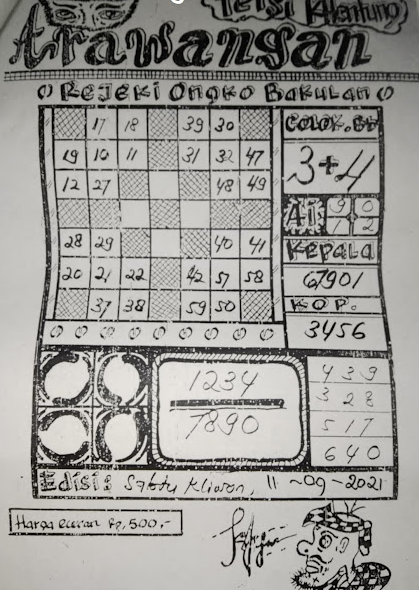 Arawangan
Rejeki Ongko Bakulan
17 18 39 30
19 10 11 31 32 47
12 27 48 49
28 29 40 41
20 21 22 42 57 58
37 38 59 50
3+4
Ai
KEPALA
67901
KOP.
3456
1234
7890
439
328
517
640
Edisi: Sabtu Kliwon, 11-09-2021
Harga eceran Rp. 500,-